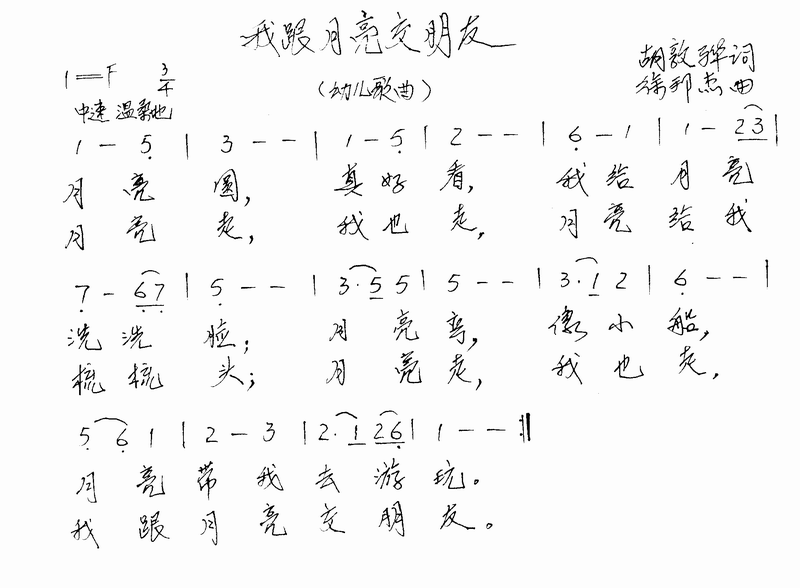 我跟月亮交朋友
(幼儿歌曲)
1=F 3/4
胡敦骅词
徐邦杰曲
中速 温柔地
1 - 5̣ | 3 - - | 1 - 5̣ | 2 - - | 6̣ - 1 | 1 - 2 3 |
月 亮 圆, 真 好 看, 我 给 月 亮
月 亮 走, 我 也 走, 月 亮 给 我
7̣ - 6̣ 7̣ | 5̣ - - | 3 · 5 5 | 5 - - | 3 · 1 2 | 6̣ - - |
洗 洗 脸; 月 亮 弯, 像 小 船,
梳 梳 头; 月 亮 走, 我 也 走,
5̣ 6̣ 1 | 2 - 3 | 2 · 1 2 6̣ | 1 - - :‖
月 亮 带 我 去 游 玩。
我 跟 月 亮 交 朋 友。